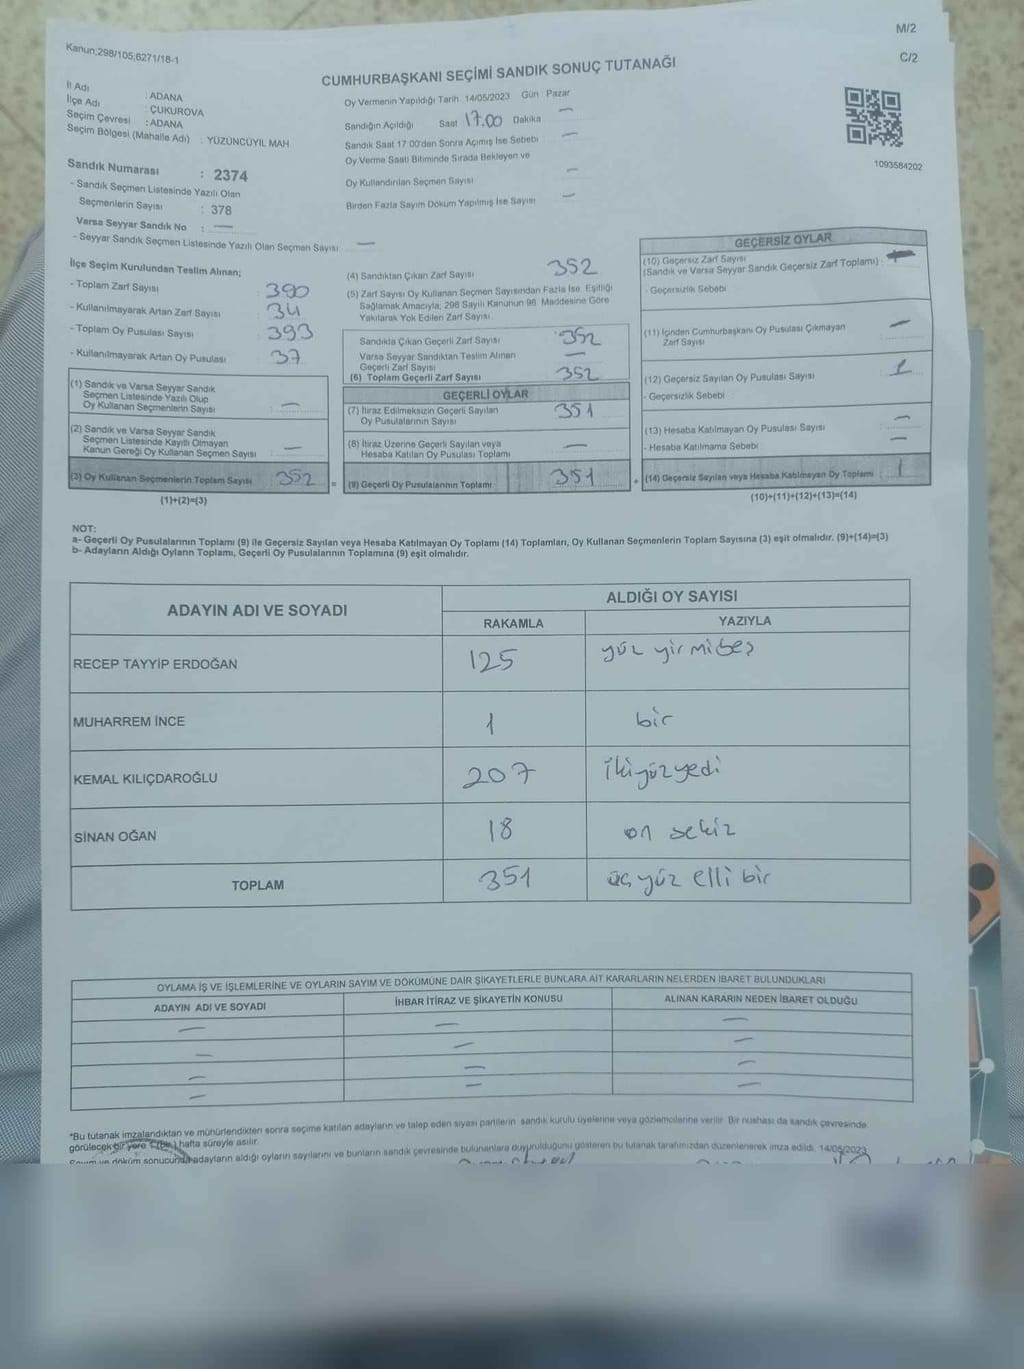 Kanun;298/105;6271/18-1
M/2
C/2
CUMHURBAŞKANI SEÇİMİ SANDIK SONUÇ TUTANAĞI
İl Adı : ADANA
İlçe Adı : ÇUKUROVA
Seçim Çevresi : ADANA
Seçim Bölgesi (Mahalle Adı) : YÜZÜNCÜYIL MAH
Oy Vermenin Yapıldığı Tarih 14/05/2023 Gün : Pazar
Sandığın Açıldığı Saat 17.00 Dakika —
Sandık Saat 17 00'den Sonra Açımış İse Sebebi —
Oy Verme Saati Bitiminde Sırada Bekleyen ve
Oy Kullandırılan Seçmen Sayısı —
Birden Fazla Sayım Döküm Yapılmış İse Sayısı —
1093584202
Sandık Numarası : 2374
- Sandık Seçmen Listesinde Yazılı Olan
Seçmenlerin Sayısı : 378
Varsa Seyyar Sandık No : —
- Seyyar Sandık Seçmen Listesinde Yazılı Olan Seçmen Sayısı —
İlçe Seçim Kurulundan Teslim Alınan;
- Toplam Zarf Sayısı : 390
- Kullanılmayarak Artan Zarf Sayısı : 34
- Toplam Oy Pusulası Sayısı : 393
- Kullanılmayarak Artan Oy Pusulası : 37
(1) Sandık ve Varsa Seyyar Sandık
Seçmen Listesinde Yazılı Olup
Oy Kullanan Seçmenlerin Sayısı : —
(2) Sandık ve Varsa Seyyar Sandık
Seçmen Listesinde Kayıtlı Olmayan
Kanun Gereği Oy Kullanan Seçmen Sayısı : —
(3) Oy Kullanan Seçmenlerin Toplam Sayısı : 352
(1)+(2)=(3)
(4) Sandıktan Çıkan Zarf Sayısı 352
(5) Zarf Sayısı Oy Kullanan Seçmen Sayısından Fazla İse, Eşitliği
Sağlamak Amacıyla, 298 Sayılı Kanunun 98. Maddesine Göre
Yakılarak Yok Edilen Zarf Sayısı
Sandıkta Çıkan Geçerli Zarf Sayısı : 352
Varsa Seyyar Sandıktan Teslim Alınan
Geçerli Zarf Sayısı —
(6) Toplam Geçerli Zarf Sayısı 352
GEÇERLİ OYLAR
(7) İtiraz Edilmeksizin Geçerli Sayılan
Oy Pusulalarının Sayısı 351
(8) İtiraz Üzerine Geçerli Sayılan veya
Hesaba Katılan Oy Pusulası Toplamı —
= (9) Geçerli Oy Pusulalarının Toplamı 351
GEÇERSİZ OYLAR
(10) Geçersiz Zarf Sayısı
(Sandık ve Varsa Seyyar Sandık Geçersiz Zarf Toplamı) : —
- Geçersizlik Sebebi
(11) İçinden Cumhurbaşkanı Oy Pusulası Çıkmayan
Zarf Sayısı —
(12) Geçersiz Sayılan Oy Pusulası Sayısı : 1
- Geçersizlik Sebebi
(13) Hesaba Katılmayan Oy Pusulası Sayısı : —
- Hesaba Katılmama Sebebi —
+ (14) Geçersiz Sayılan veya Hesaba Katılmayan Oy Toplamı : 1
(10)+(11)+(12)+(13)=(14)
NOT:
a- Geçerli Oy Pusulalarının Toplamı (9) ile Geçersiz Sayılan veya Hesaba Katılmayan Oy Toplamı (14) Toplamları, Oy Kullanan Seçmenlerin Toplam Sayısına (3) eşit olmalıdır. (9)+(14)=(3)
b- Adayların Aldığı Oyların Toplamı, Geçerli Oy Pusulalarının Toplamına (9) eşit olmalıdır.
ADAYIN ADI VE SOYADI
ALDIĞI OY SAYISI
RAKAMLA YAZIYLA
RECEP TAYYİP ERDOĞAN 125 yüz yirmibeş
MUHARREM İNCE 1 bir
KEMAL KILIÇDAROĞLU 207 ikiyüzyedi
SİNAN OĞAN 18 on sekiz
TOPLAM 351 üçyüz elli bir
OYLAMA İŞ VE İŞLEMLERİNE VE OYLARIN SAYIM VE DÖKÜMÜNE DAİR ŞİKAYETLERLE BUNLARA AİT KARARLARIN NELERDEN İBARET BULUNDUKLARI
ADAYIN ADI VE SOYADI İHBAR İTİRAZ VE ŞİKAYETİN KONUSU ALINAN KARARIN NEDEN İBARET OLDUĞU
— — —
— — —
— — —
— — —
*Bu tutanak imzalandıktan ve mühürlendikten sonra seçime katılan adayların ve talep eden siyasi partilerin sandık kurulu üyelerine veya gözlemcilerine verilir. Bir nüshası da sandık çevresinde
görülecek bir yere 1 (Bir) hafta süreyle asılır.
Sayım ve döküm sonucunda adayların aldığı oyların sayılarını ve bunların sandık çevresinde bulunanlara duyurulduğunu gösteren bu tutanak tarafımızdan düzenlenerek imza edildi. 14/05/2023